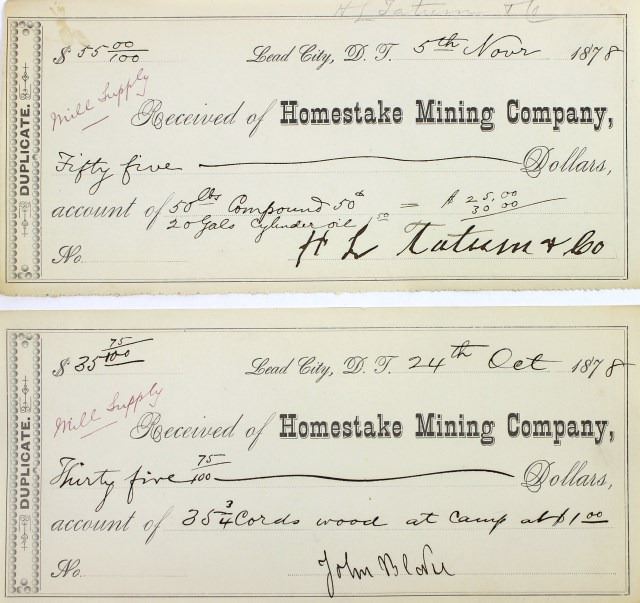 H L Tatum & Co
$ 55 00/100 Lead City, D. T. 5th Novr 1878
Mill Supply
Received of Homestake Mining Company,
Fifty five Dollars,
account of 50 lbs Compound 50 = $ 25.00
20 Gals Cylinder oil 50 30 00
No. H L Tatum & Co
DUPLICATE.
$ 35 75/100 Lead City, D. T. 24th Oct 1878
Mill Supply
Received of Homestake Mining Company,
Thirty five 75/100 Dollars,
account of 35 3/4 Cords wood at camp at $1 00
No. John
DUPLICATE.